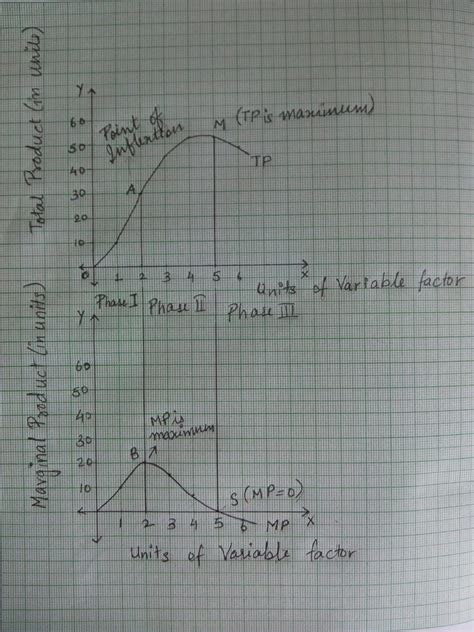 Total Product (in units)
Y
60
50
40
30
20
10
0
Point of
Inflextion
A
M (TP is maximum)
TP
1 2 3 4 5 6 X
Units of Variable factor
Phase I Phase II Phase III
Marginal Product (in units)
Y
60
50
40
30
20
10
MP is
maximum
B
S (MP=0)
1 2 3 4 5 6 MP X
Units of Variable factor